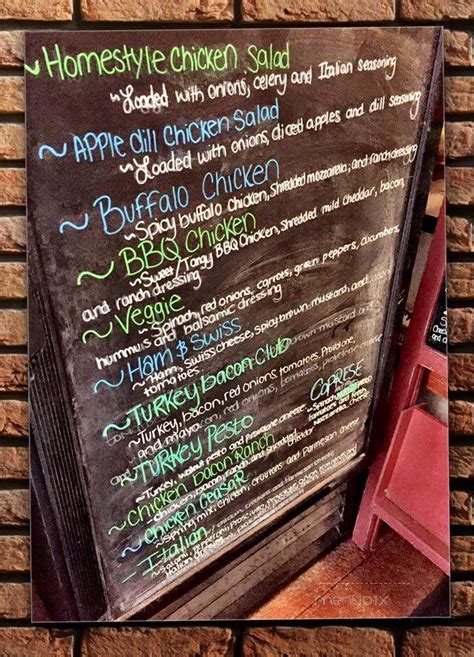 ~Homestyle Chicken Salad
~Loaded with onions, celery and Italian seasoning
~Apple dill Chicken Salad
~Loaded with onions, diced apples and dill seasoning
~Buffalo Chicken
~Spicy buffalo chicken, Shredded mozzarella, and ranch dressing
~BBQ Chicken
~Sweet/Tangy BBQ Chicken, Shredded mild cheddar, bacon,
and ranch dressing
~Veggie
~Spinach, red onions, carrots, green peppers, cucumbers,
hummuis and balsamic dressing
~Ham & Swiss
~Ham, Swiss cheese, Spicy brown mustard, and
tomatoes
~Turkey bacon Club
~Turkey, bacon, red onions, tomatoes, Provolone,
and mayo
~Turkey Pesto
~Turkey, walnut pesto and Provolone cheese
Caprese
~Spinach,
tomatoes and
Mozzarella cheese
~Chicken bacon Ranch
~Chicken, bacon, ranch and shredded
cheddar
~Chicken Ceasar
~Spring mix, chicken, croutons and Parmesan cheese
~Italian
~Salami, Pepperoni, Prosciutto, Provolone,
Italian dressing
menupix